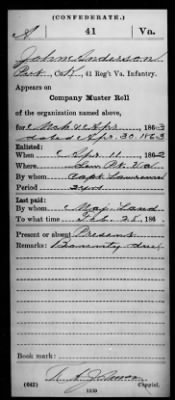 (CONFEDERATE.)
A 41 Va.
John Anderson
Pvt., Co. 41 Reg't Va. Infantry.
Appears on
Company Muster Roll
of the organization named above,
for Mch & Apr, 1863
dated Apr. 30, 1863
Enlisted:
When Apr. 11, 1862
Where Va
By whom Capt. Lawrence
Period 3 yrs
Last paid:
By whom Maj. Land
To what time Feb. 28, 186
Present or absent Present
Remarks: Bounty due
Book mark:
(642) Copyist.